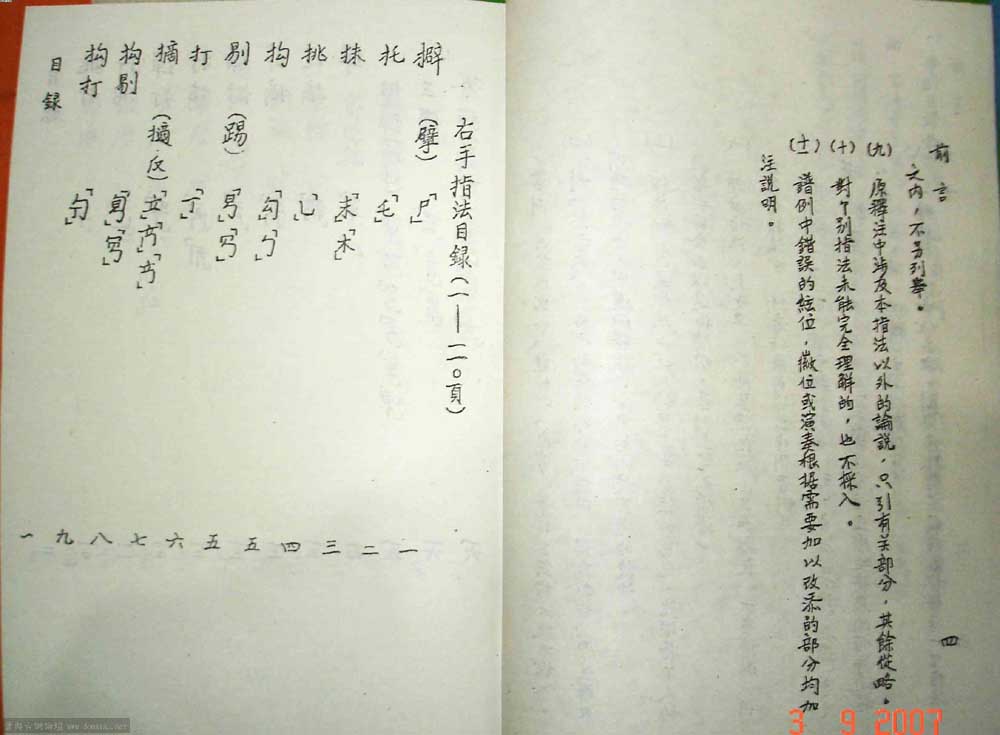 前言
四
之内，不另列舉。
(九) 原釋注中涉及本指法以外的論說，只引有关部分，其餘從略。
(十) 對个别指法未能完全理解的，也不採入。
(十一) 譜例中錯誤的絃位，徽位或演奏根据需要加以改添的部分均加
注説明。
右手指法目録(一——一一〇頁)
擗(擘)「尸」 一
托「乇」 二
抹「末」「木」 三
挑「乚」 四
抅「勹」 五
剔(踢) 五
打「丁」 六
摘(擿 七
抅剔 八
抅打 九
目録
一
3 9 2007